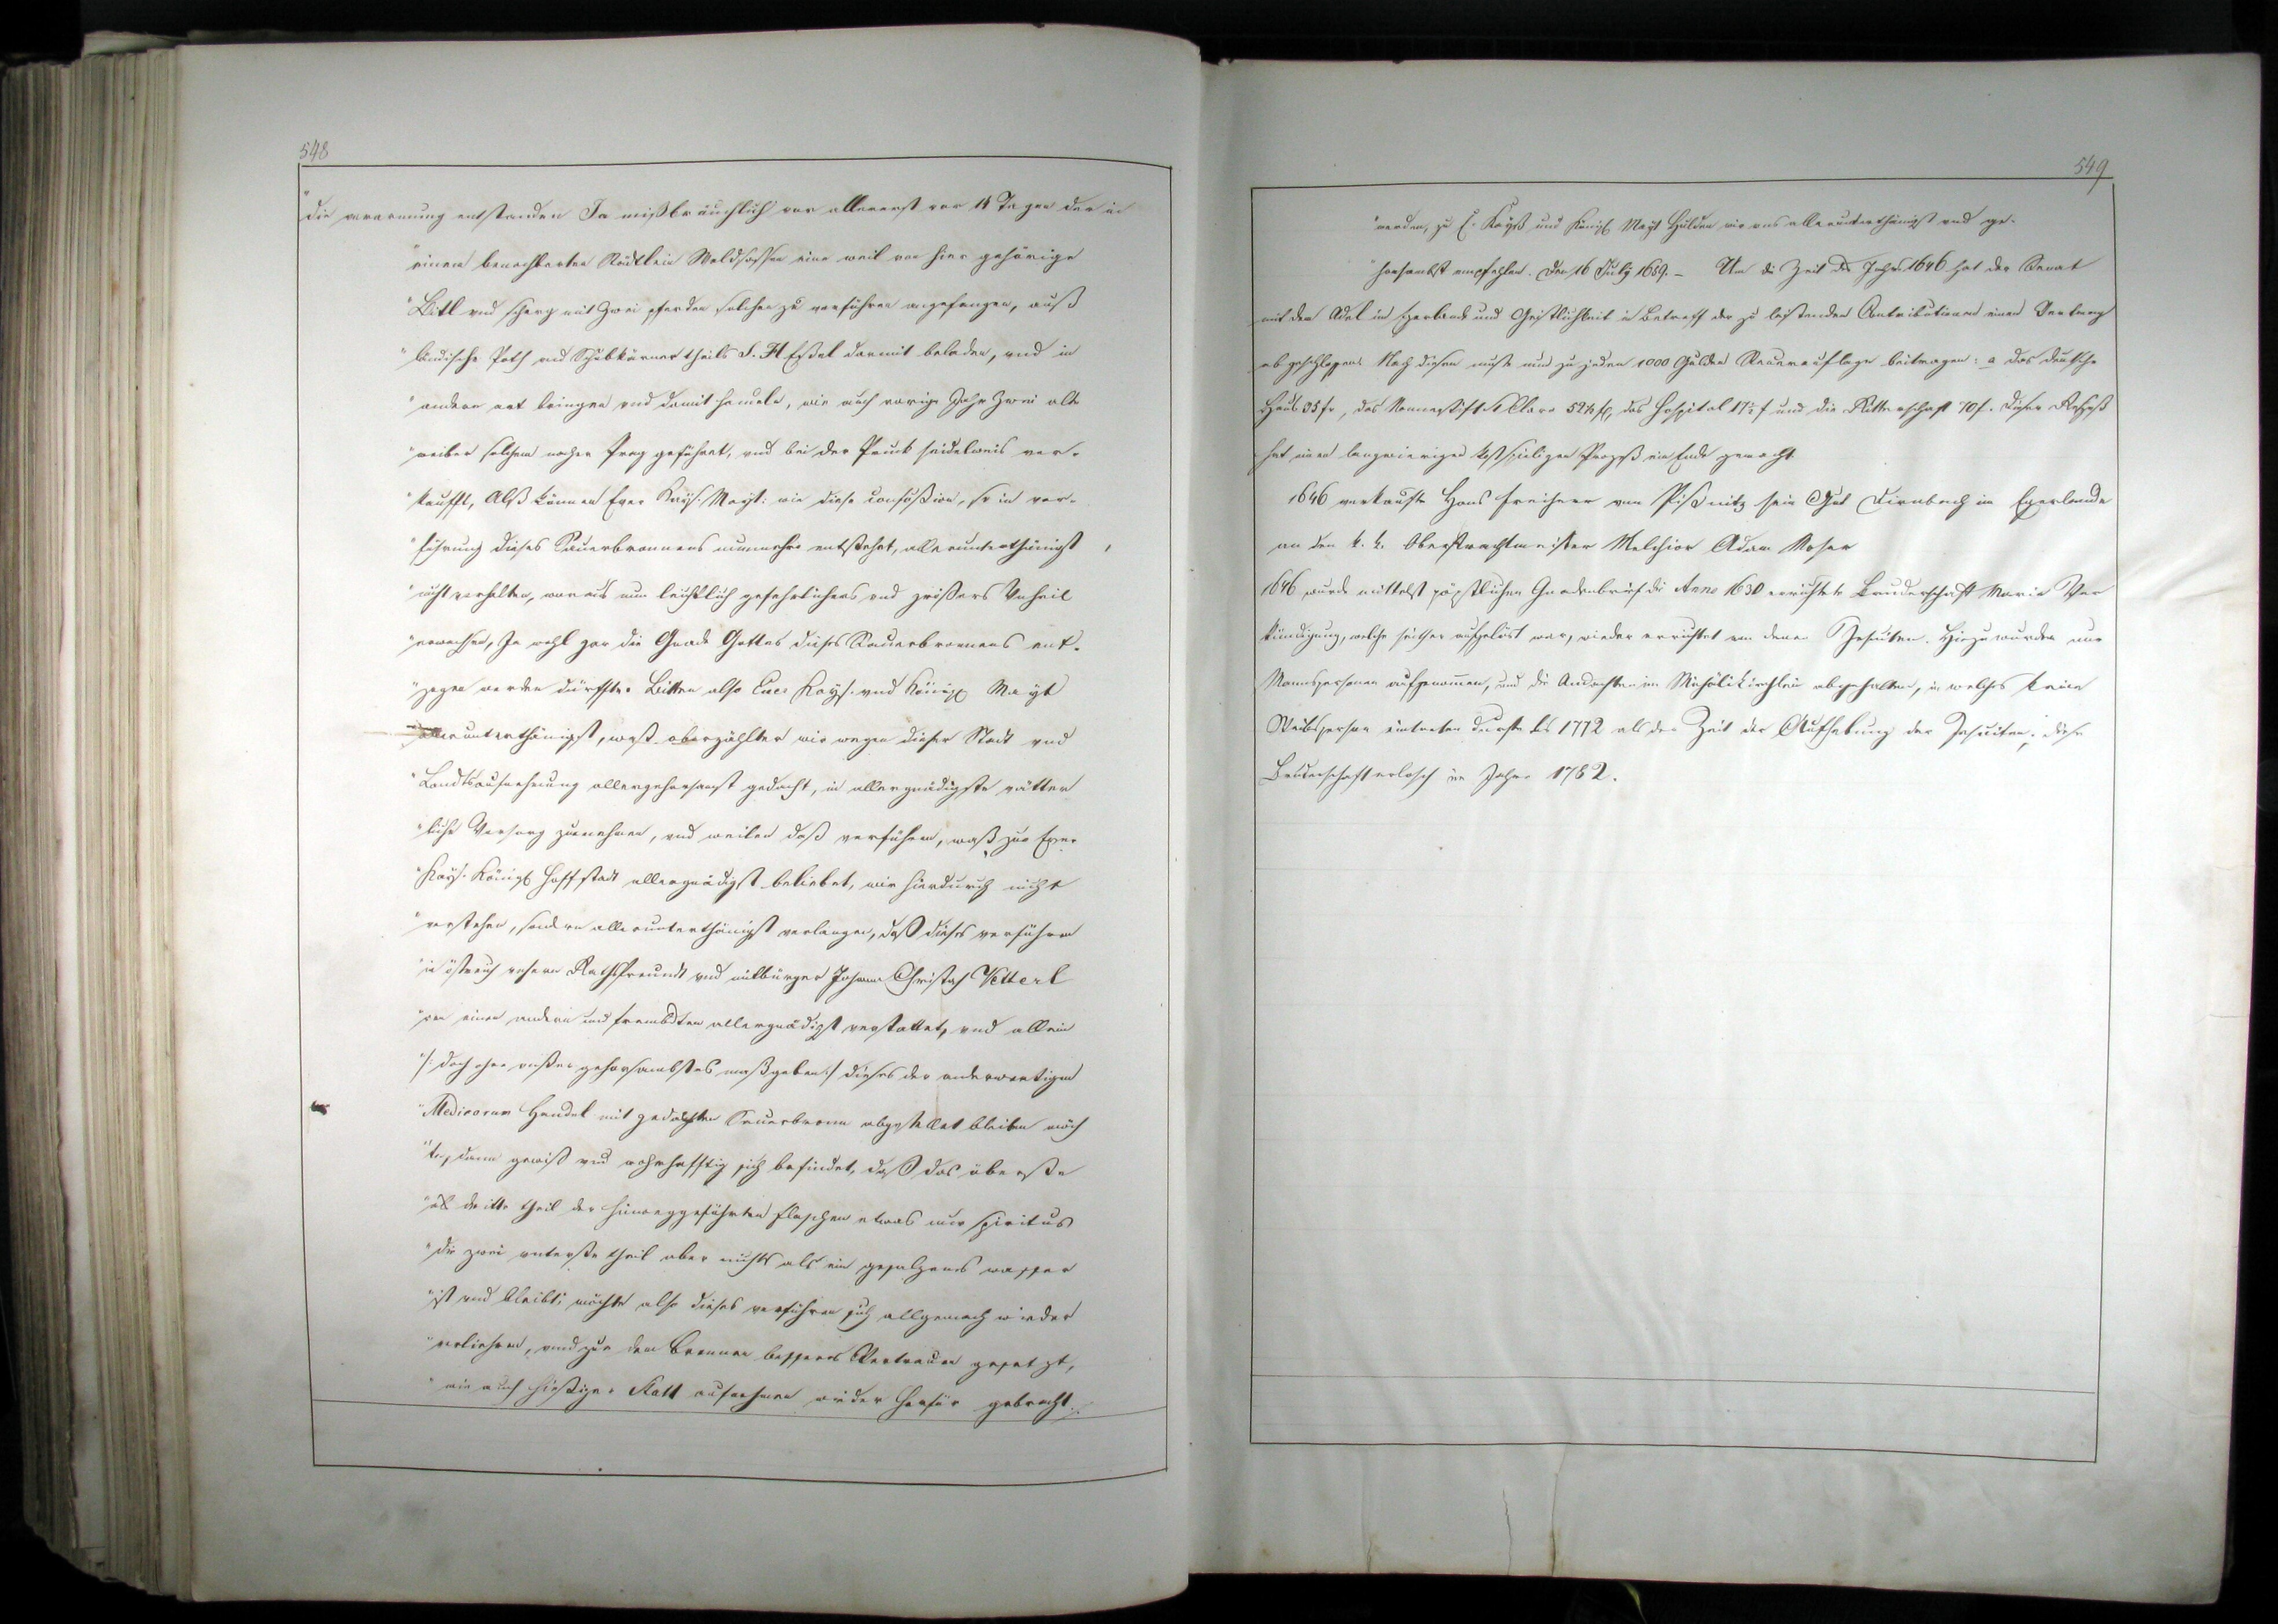 548
"die verarmung entstanden Ja mißbräuchlich vor allererst vor 14 Tagen der in
"einem benachbarten Städtlein Waldsassen eine weil von hier gehörige
"Bittl und scherg mit Zwei pferden solchen zu verführen angefangen, auß
"ländische Poth und Schubkärner theils S. H Eßel darmit beladen, und in
"andere ort bringen und damit handeln, wie auch vorige Jahr Zwei alte
"weiber solchen nacher Prag geführet, und bei der Pruck seidelweis ver-
"kaufft, Alß können Euer Kays. Mayt: wie diese confußion, so in ver-
"führung dieses Sauerbronnens nunmehr entstehet, allerunterthänigst
"nicht verhalten, woraus nun leichtlich gefehrlichers und größers Unheil
"erwachsen, Ja wohl gar die Gnade Gottes dieses Sauerbronnens ent-
"zogen werden dürffte. Bitten also Euer Kays. und Königl Mayt
"allerunterthänigst, waß oberzählter wir wegen dieser Stadt und
"Landtsaufnehmung allergehorsamst gedacht, in allergnädigste vätter
"liche Vorsorg zunehmen, und weilen daß verführen, waß zur Euer
"Kays. Königl Hoffstadt allergnädigst beliebet, wir hierdurch nicht
"verstehen, sondern allerunterthänigst verlangen, daß dieses verführen
"in östreich unsern Rathsfreundt und mitbürger Johann Christoph Vetterl
"vor einen andern und frembdten allergnädigst verstattet, und allein
"/: doch ohne unßer gehorsambstes maßgeben :/ dieses der anderwertigen
"Medicorum Handel mit gedachten Sauerbronn abgestellet bleiben möch
"te, dann gewiß und wahrhafftig sich befindet, daß das überste
"als dritte theil der hinweggeführten flaschen etwas nur spiritus
"die zwei unterste theil aber nichts als ein gesalzenes wasser
"ist und bleibt; möchte also dieses verführen sich allgemach wieder
"verliehren, und zu dem bronnen besseres Vertrauen gesetzt,
"wie auch hiesiger Statt aufnehmen wieder herfür gebracht
549
"werden, zu E. Kayß und Königl Mayt Hulden wir uns allerunterthänigst und ge-
"horsambst empfehlen. Den 16 July 1689. – Um die Zeit des Jahrs 1646 hat der Senat
mit den Adel im Egerlande und Geistlichkeit in Betreff der zu leistenden Contributionen einen Vertrag
abgeschlossen. Nach diesen mußte nun zu jeden 1000 Gulden Steuerauflage beitragen: a das deutsche
Haus 35 fr, das Nonnenstift St Clara 52½ f, das Hospital 17½ f und die Ritterschaft 70 f. Dieser Rezeß
hat einen langwierigen kostspieligen Prozeß ein Ende gemacht.
1646 verkaufte Hans Freiherr von Pißnitz sein Gut Dirnbach im Egerlande
an den k. k. Oberstwachtmeister Melchior Adam Moser
1646 wurde mittelst päpstlichen Gnadenbrief die Anno 1630 errichtete Bruderschaft Maria Ver
kündigung, welche seither aufgelöst war, wieder errichtet von denen Jesuiten. Hiezu wurden nur
Mannspersonen aufgenommen, und die Andachten im Michälikirchlein abgehalten, in welches keine
Weibsperson eintreten durfte bis 1772 als der Zeit der Aufhebung der Jesuiten; diese
Bruderschaft erlosch im Jahre 1782.